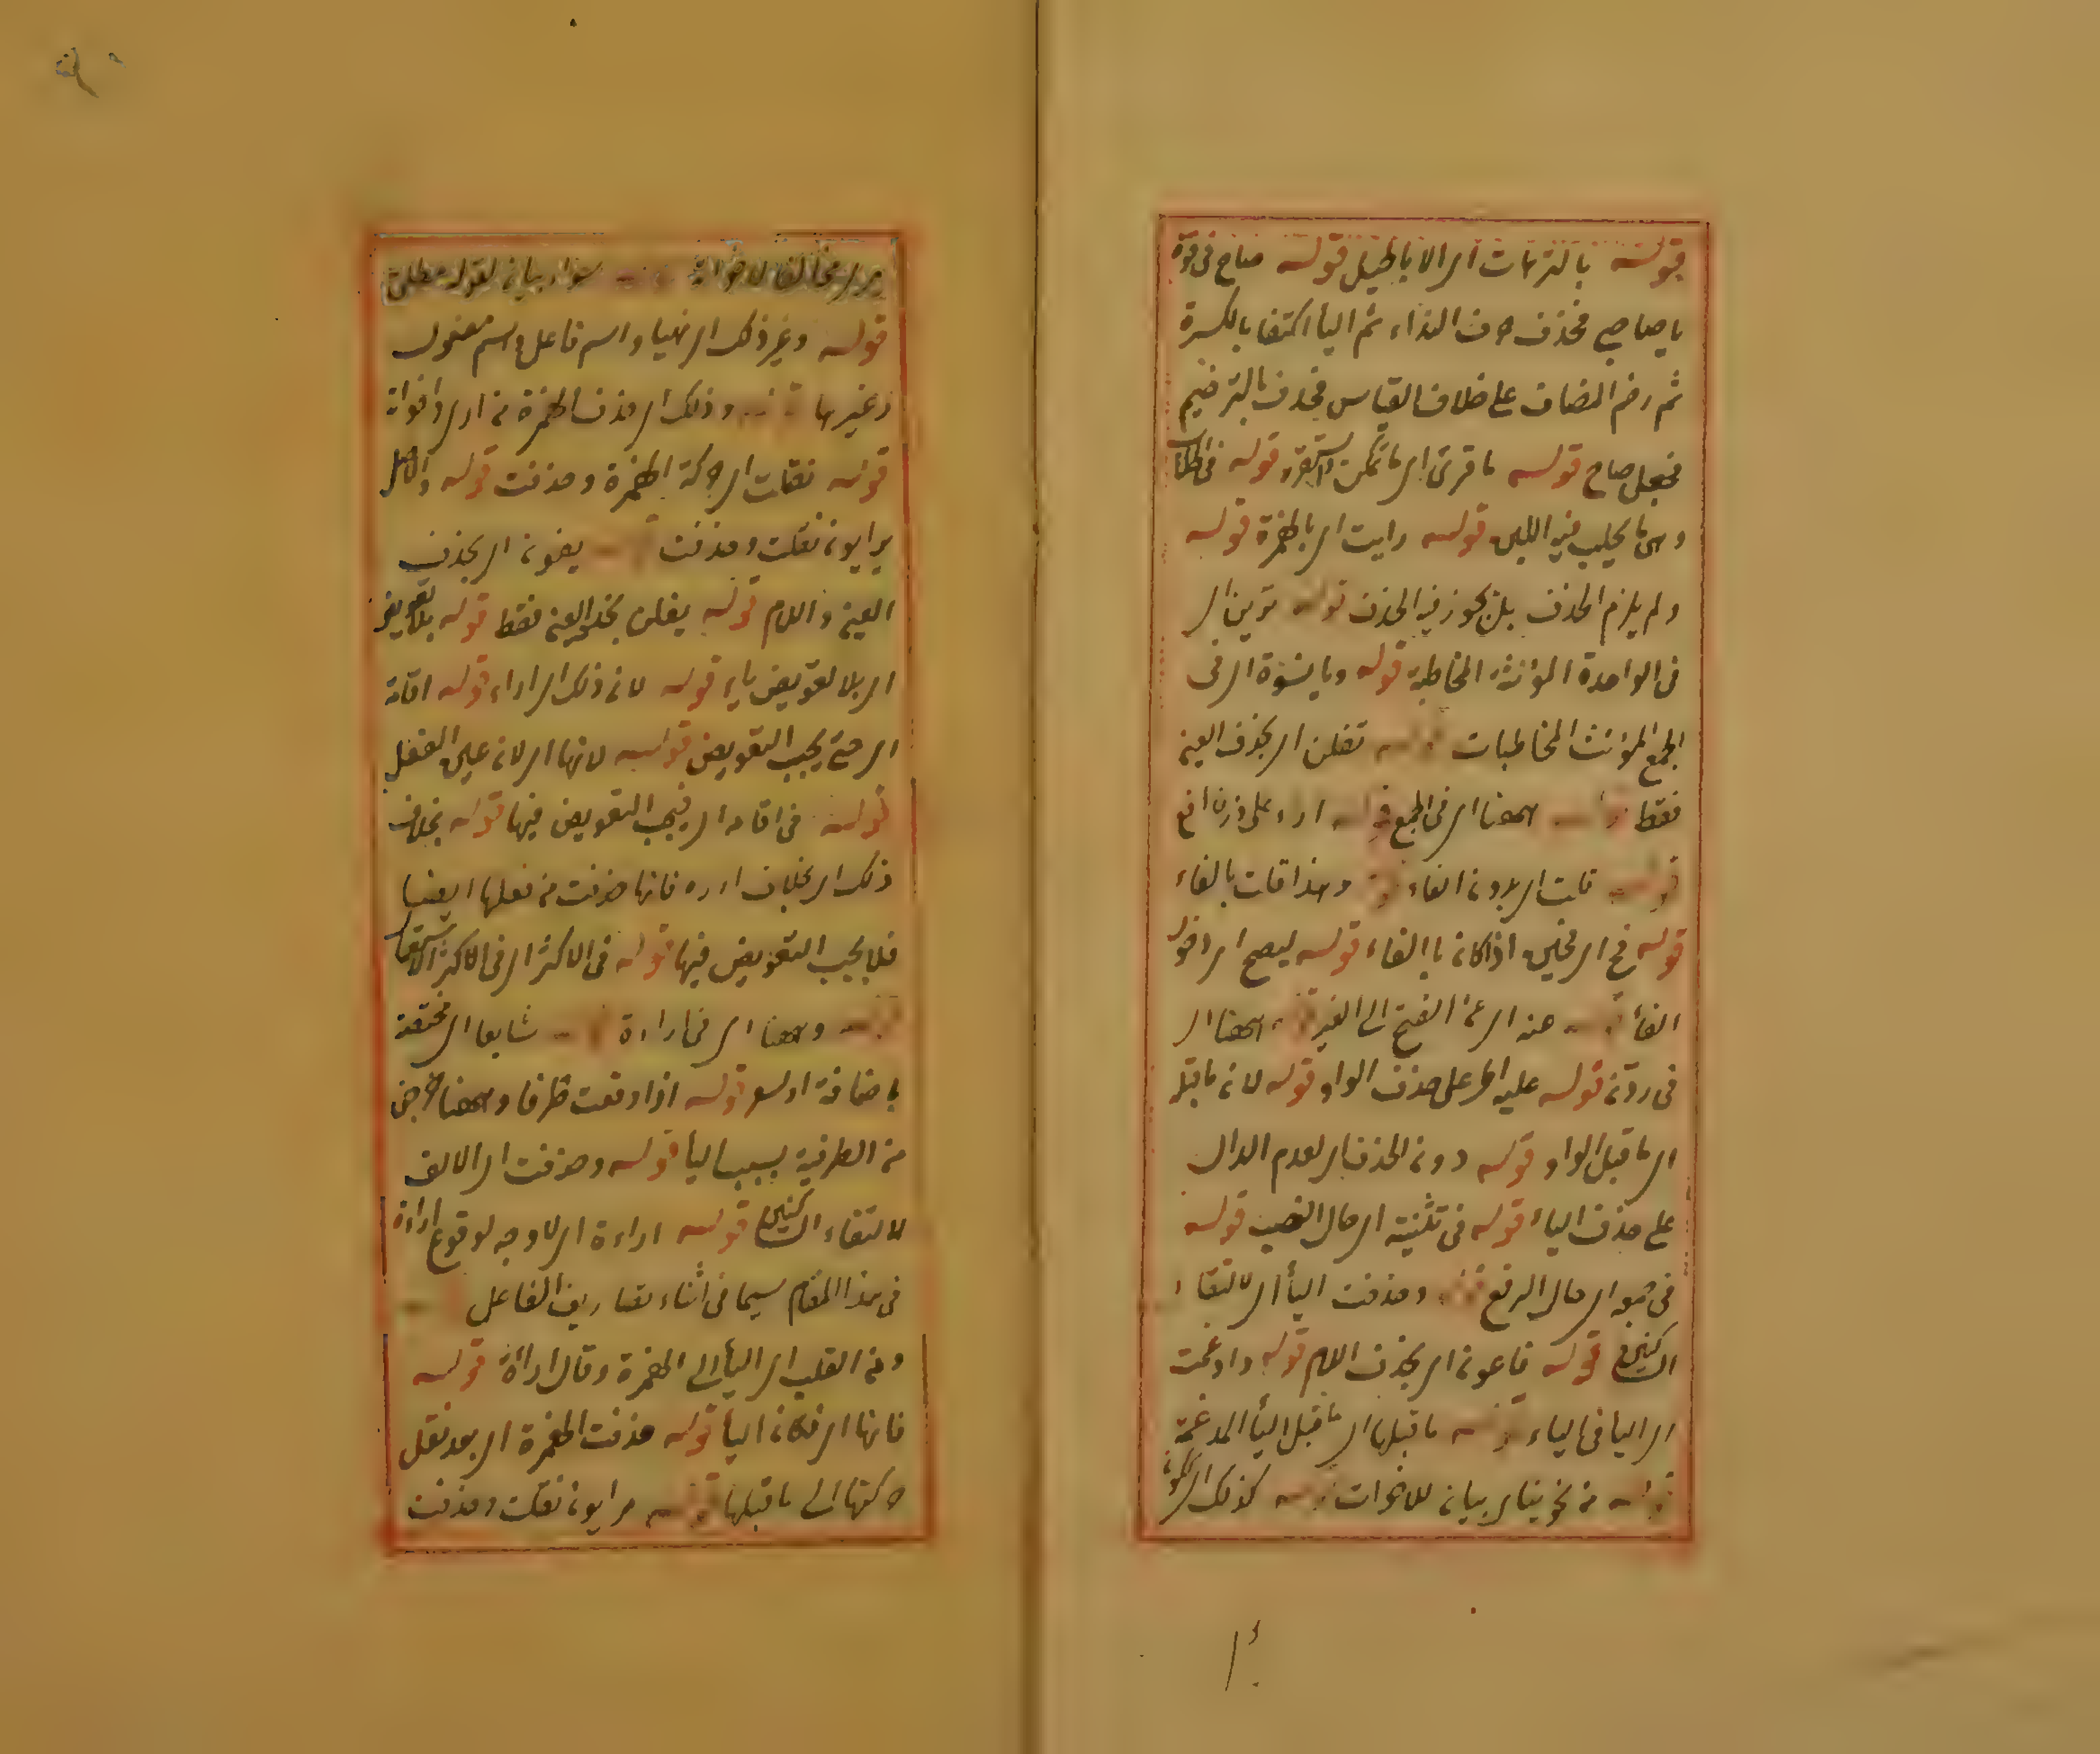 قوله بالترهات اى الاباطيل قوله صاح فى قوة
يا صاحبى فحذف حرف النداء ثم اليا اكتفا بالكسرة
ثم رخم المضاف على خلاف القياس فحذف بالترخيم
فجعل صاح قوله ما قرى اى ما تمكن واستقر قوله فى العلاب
وهى ما يحلب فيه اللبن قوله رايت اى بالهمزة قوله
ولم يلزم الحذف بل يجوز فيه الحذف قوله ترين اى
فى الواحدة المؤنثة المخاطبة قوله ويا نسوة اى فى
الجمع المؤنث المخاطبات قوله تفلن اى بحذف العين
فقط قوله ههنا اى فى الجمع قوله ارء على وزن افع
قوله قلت اى بدون الفاء وهذا قلت بالفاء
قوله فح اى فحين اذ كان بالفاء قوله ليصح اى دخول
الفأ قوله عنه اى عن الفتح الى الغير قوله ههنا اى
فى رونّ قوله عليه اى على حذف الواو قوله لان ما قبله
اى ما قبل الواو قوله دون الحذف اى لعدم الدال
على حذف الياء قوله فى تثنية اى حال النصب قوله
فى جمعه اى حال الرفع قوله وحذفت اليأ اى لالتقاء
الساكنين قوله فاعون اى بحذف اللام قوله وادغمت
اى اليا فى الياء قوله ما قبلها اى ما قبل اليأ المدغمة
قوله من نحو ينا بيان للاخوات قوله كذلك اى
لاخواته قوله سواء بيان لقوله مطلق
قوله وغير ذلك اى نهيا واسم فاعل واسم مفعول
وغيرها قوله وذلك اى حذف الهمزة من ارى واخواته
قوله نقلت اى حركة الهمزة وحذفت قوله والاصل
يرايون نقلت وحذفت قوله يفون اى بحذف
العين واللام قوله يفلن بحذف العين فقط قوله بلا تعويض
اى بلا تعويض ياء قوله لان ذلك اى اراء قوله اقامة
اى حتى يجب التعويض قوله لانها اى لان عين الفعل
قوله فى اقامة اى فيجب التعويض فيها قوله بخلاف
ذلك اى بخلاف اره فانها حذفت من فعلها ايضا
فلا يجب التعويض فيها قوله فى الاكثر اى فى الاكثر الاستعمال
قوله وههنا اى فى اراءة قوله شايعا اى مختصة
باضافة اوسع قوله اذا وقعت طرفا وههنا خرجن
من الطرفية بسبب اليا قوله وحذفت اى الالف
لالتقاء الساكنين قوله اراءة اى لا وجه لوقوع اراءة
فى هذا المقام سيما فى اثناء تصاريف الفاعل
ومن القلب اى اليأ الى الهمزة وقال اراءة قوله
فانها اى فكان اليا قوله حذفت الهمزة اى بعد نقل
حركتها الى ما قبلها قوله مرايون نقلت وحذفت